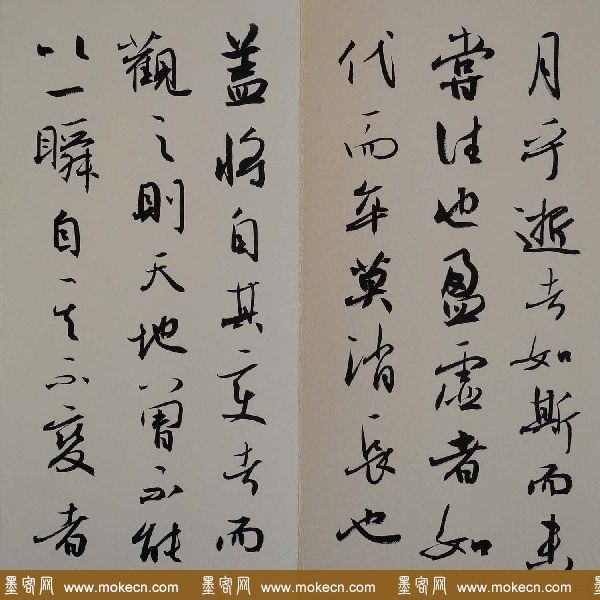 月乎逝者如斯而未
嘗往也盈虛者如
代而卒莫消長也
盖將自其變者而
觀之則天地曾不能
以一瞬自其不變者
墨客网 www.mokecn.com 墨客网 www.mokecn.com 墨客网 www.mokecn.com